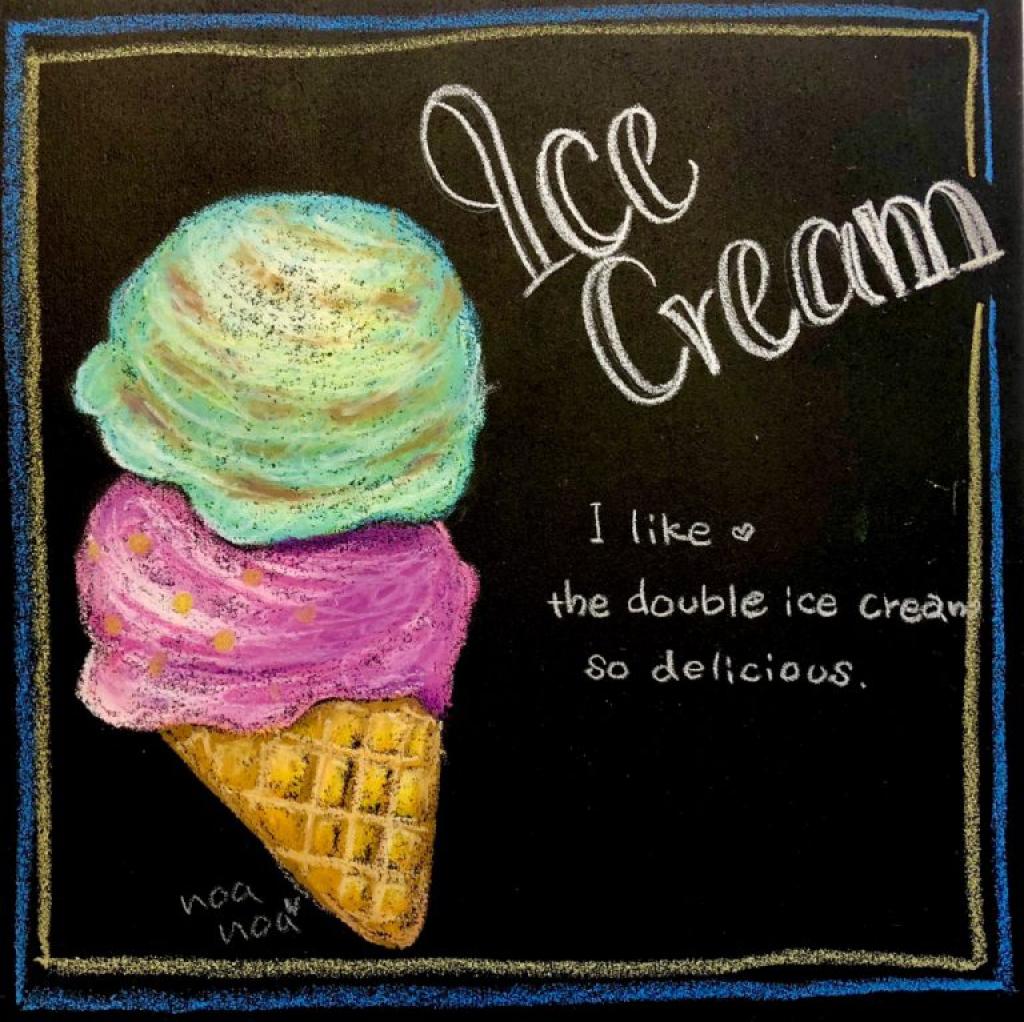 Ice
Cream
I like ♡
the double ice cream
so delicious.
noa
noa